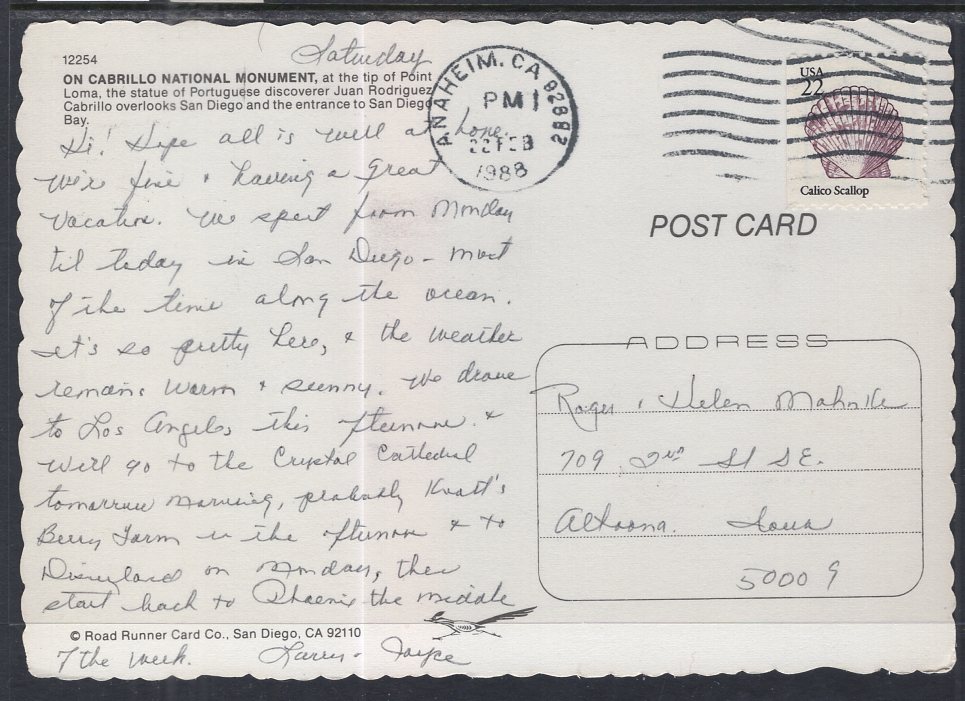 Saturday
12254
ON CABRILLO NATIONAL MONUMENT, at the tip of Point
Loma, the statue of Portuguese discoverer Juan Rodriguez
Cabrillo overlooks San Diego and the entrance to San Diego
Bay.
Hi! Hope all is well at home.
We're fine & having a great
vacation. We spent from Monday
til today in San Diego - most
of the time along the ocean.
It's so pretty here, & the weather
remains warm & sunny. We drove
to Los Angeles this afternoon &
will go to the Crystal Cathedral
tomorrow morning, probably Knott's
Berry Farm in the afternoon & to
Disneyland on Monday, then
start back to Phoenix the middle
© Road Runner Card Co., San Diego, CA 92110
of the week. Larry & Joyce
ANAHEIM, CA 92882
PM
22 FEB
1988
USA
22
Calico Scallop
POST CARD
ADDRESS
Roger & Helen Mahnke
709 2nd St SE.
Altoona. Iowa
50009